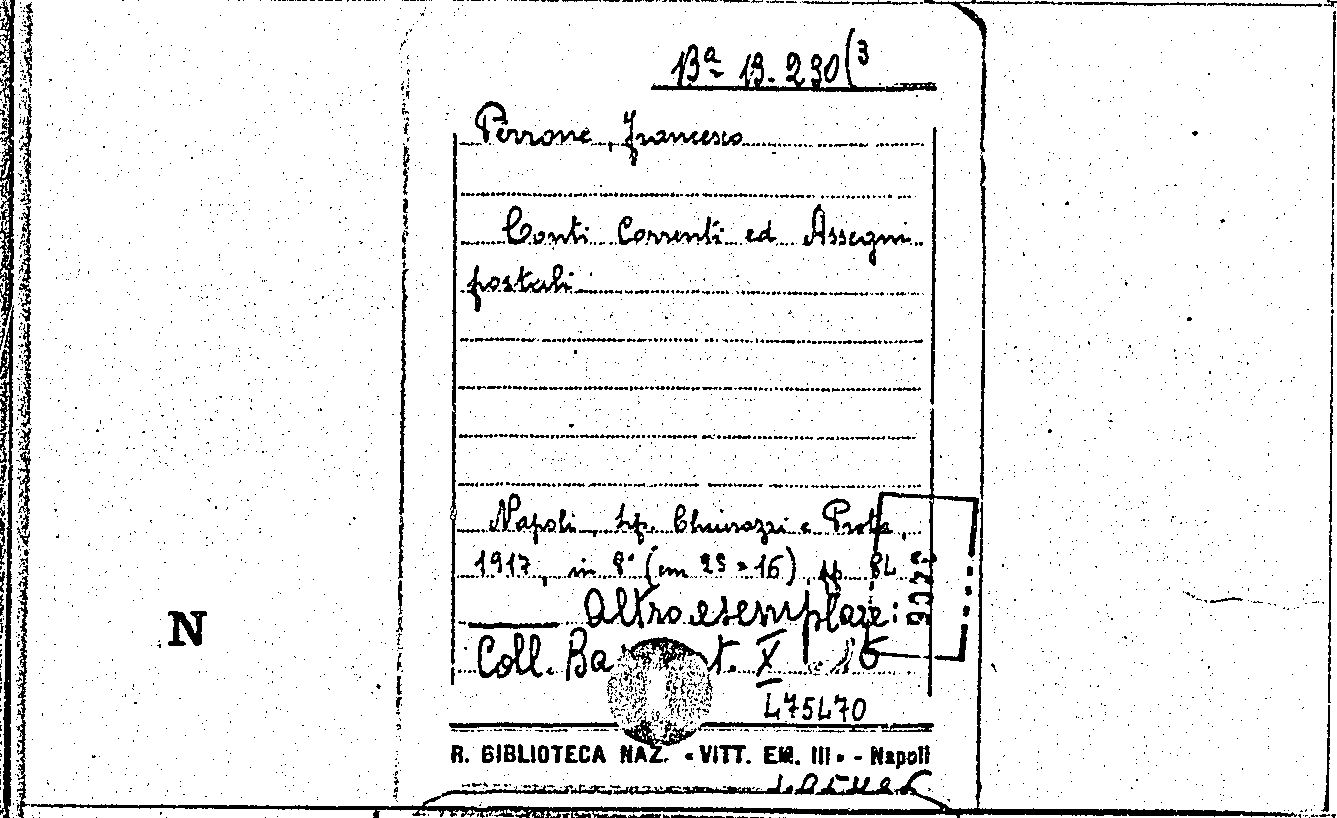 Bª 13. 230(3
Perrone, Francesco
Conti Correnti ed Assegni
postali
Napoli, tip. Chiurazzi e Prota,
1917, in 8° (cm 25 × 16) pp. 84
Altro esemplare:
Coll. Ba t. X 15
475470
N
R. BIBLIOTECA NAZ. «VITT. EM. III» - Napoli